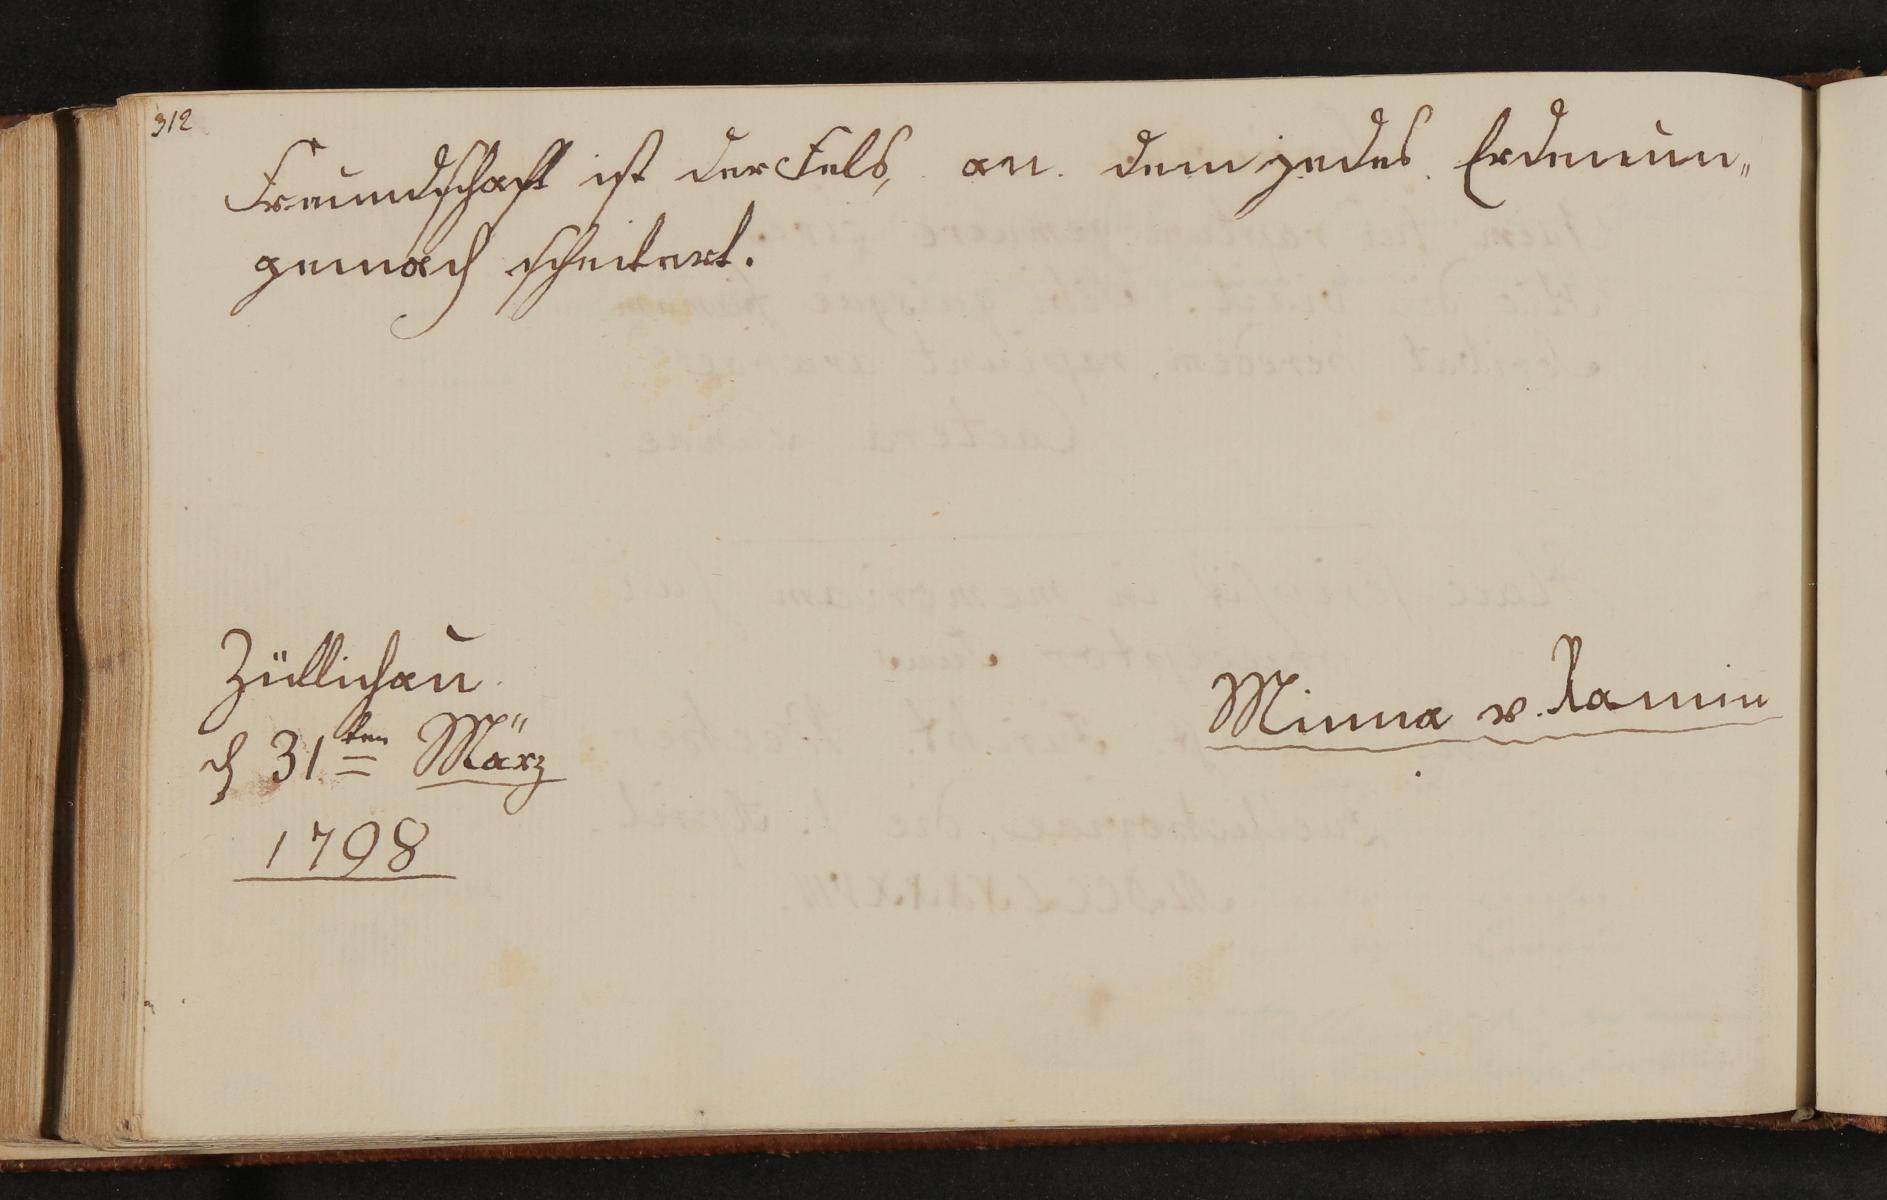 312
Freundschaft ist der Fels, an dem jedes Erdenun„
gemach scheitert.
Züllichau
d 31ten März
1798
Minna v. Ramin